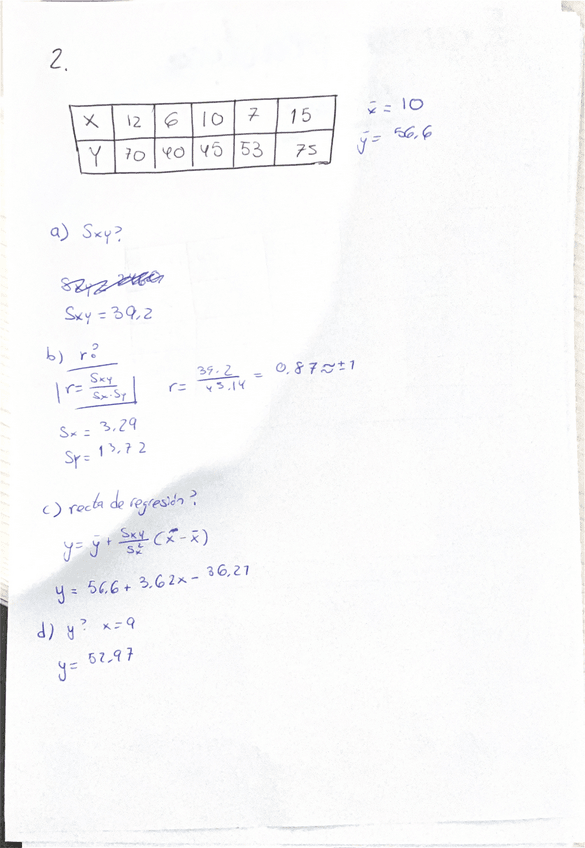 2.
X 12 6 10 7 15
Y 70 40 45 53 75
x̄ = 10
ȳ = 56,6
a) Sxy?
Sxy = 39,2
b) r?
r = Sxy / Sx·Sy
r = 39.2 / 45.14 = 0.87 ≈ ±1
Sx = 3,29
Sy = 13,72
c) recta de regresión?
y = ȳ + Sxy / Sx² (x - x̄)
y = 56,6 + 3,62x - 36,27
d) y? x=9
y = 52,97